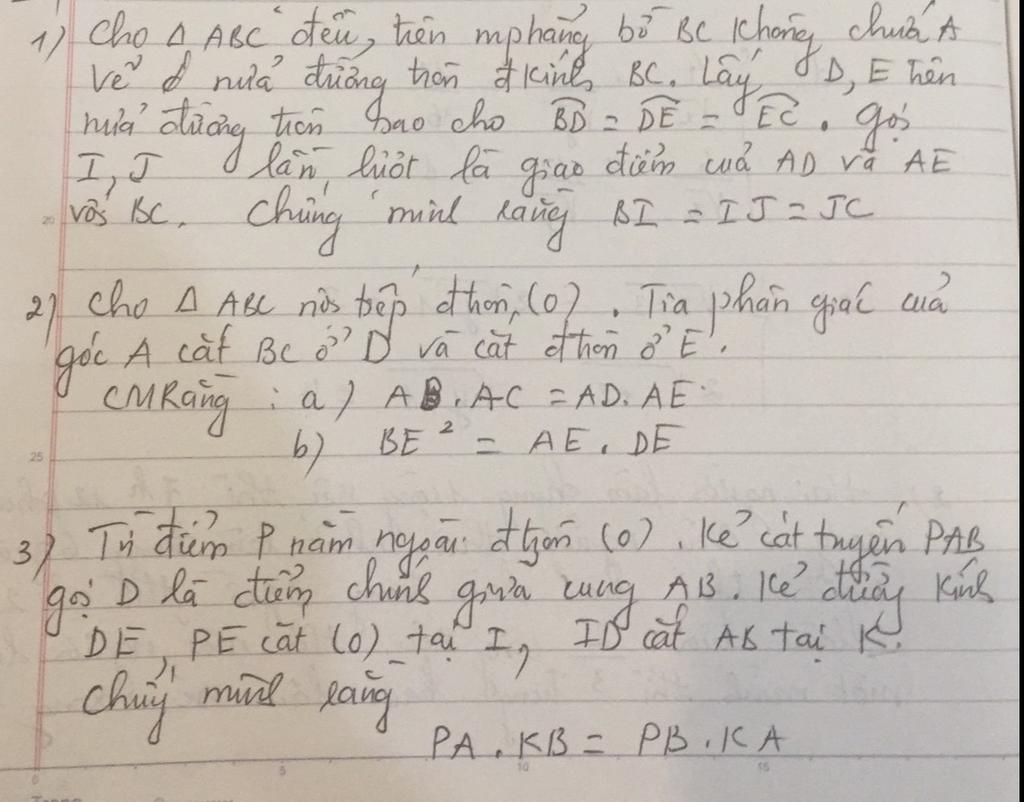 1) Cho Δ ABC đều, trên mphẳng bờ BC không chứa A
vẽ nửa đường tròn đkính BC. Lấy D, E trên
nửa đường tròn sao cho BD = DE = EC. gọi
I, J lần lượt là giao điểm của AD và AE
với BC. Chứng minh rằng BI = IJ = JC
20
2) Cho Δ ABC nội tiếp đtròn (O). Tia phân giác của
góc A cắt BC ở D và cắt đtròn ở E.
CMRằng : a) AB.AC = AD.AE
b) BE² = AE.DE
25
3) Từ điểm P nằm ngoài đtròn (O). Kẻ cát tuyến PAB
gọi D là điểm chính giữa cung AB. Kẻ đường kính
DE, PE cắt (O) tại I, ID cắt AB tại K.
Chứng minh rằng
PA.KB = PB.KA
0 5 10 15